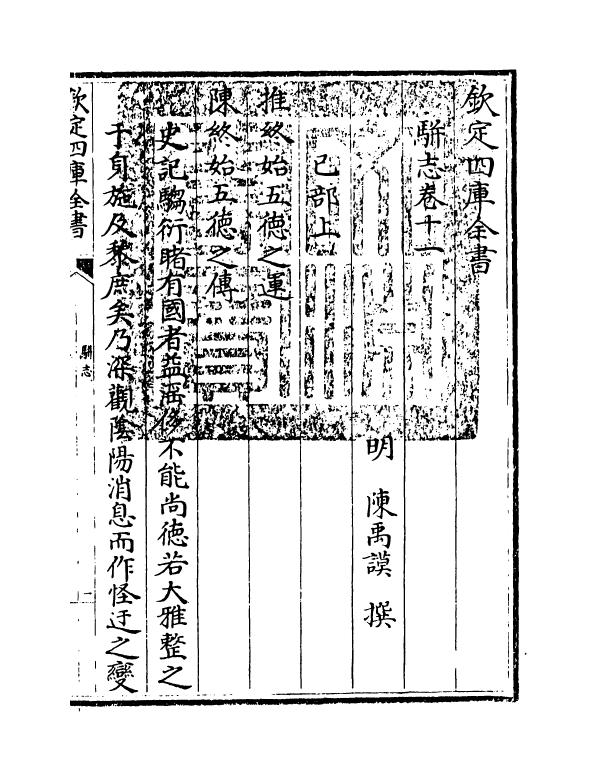 欽定四庫全書
駢志卷十一
明 陳禹謨 撰
己部上
推終始五德之運
陳終始五德之傳
史記騶衍睹有國者益淫侈不能尚德若大雅整之
于身施及黎庶矣乃深觀陰陽消息而作怪迂之變
欽定四庫全書
駢志